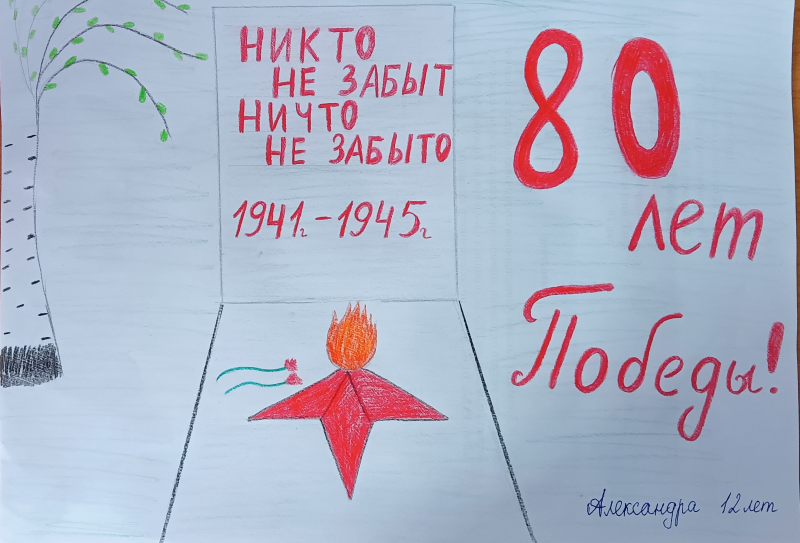 НИКТО
НЕ ЗАБЫТ
НИЧТО
НЕ ЗАБЫТО
1941г.-1945г.
80
лет
Победы!
Александра 12 лет